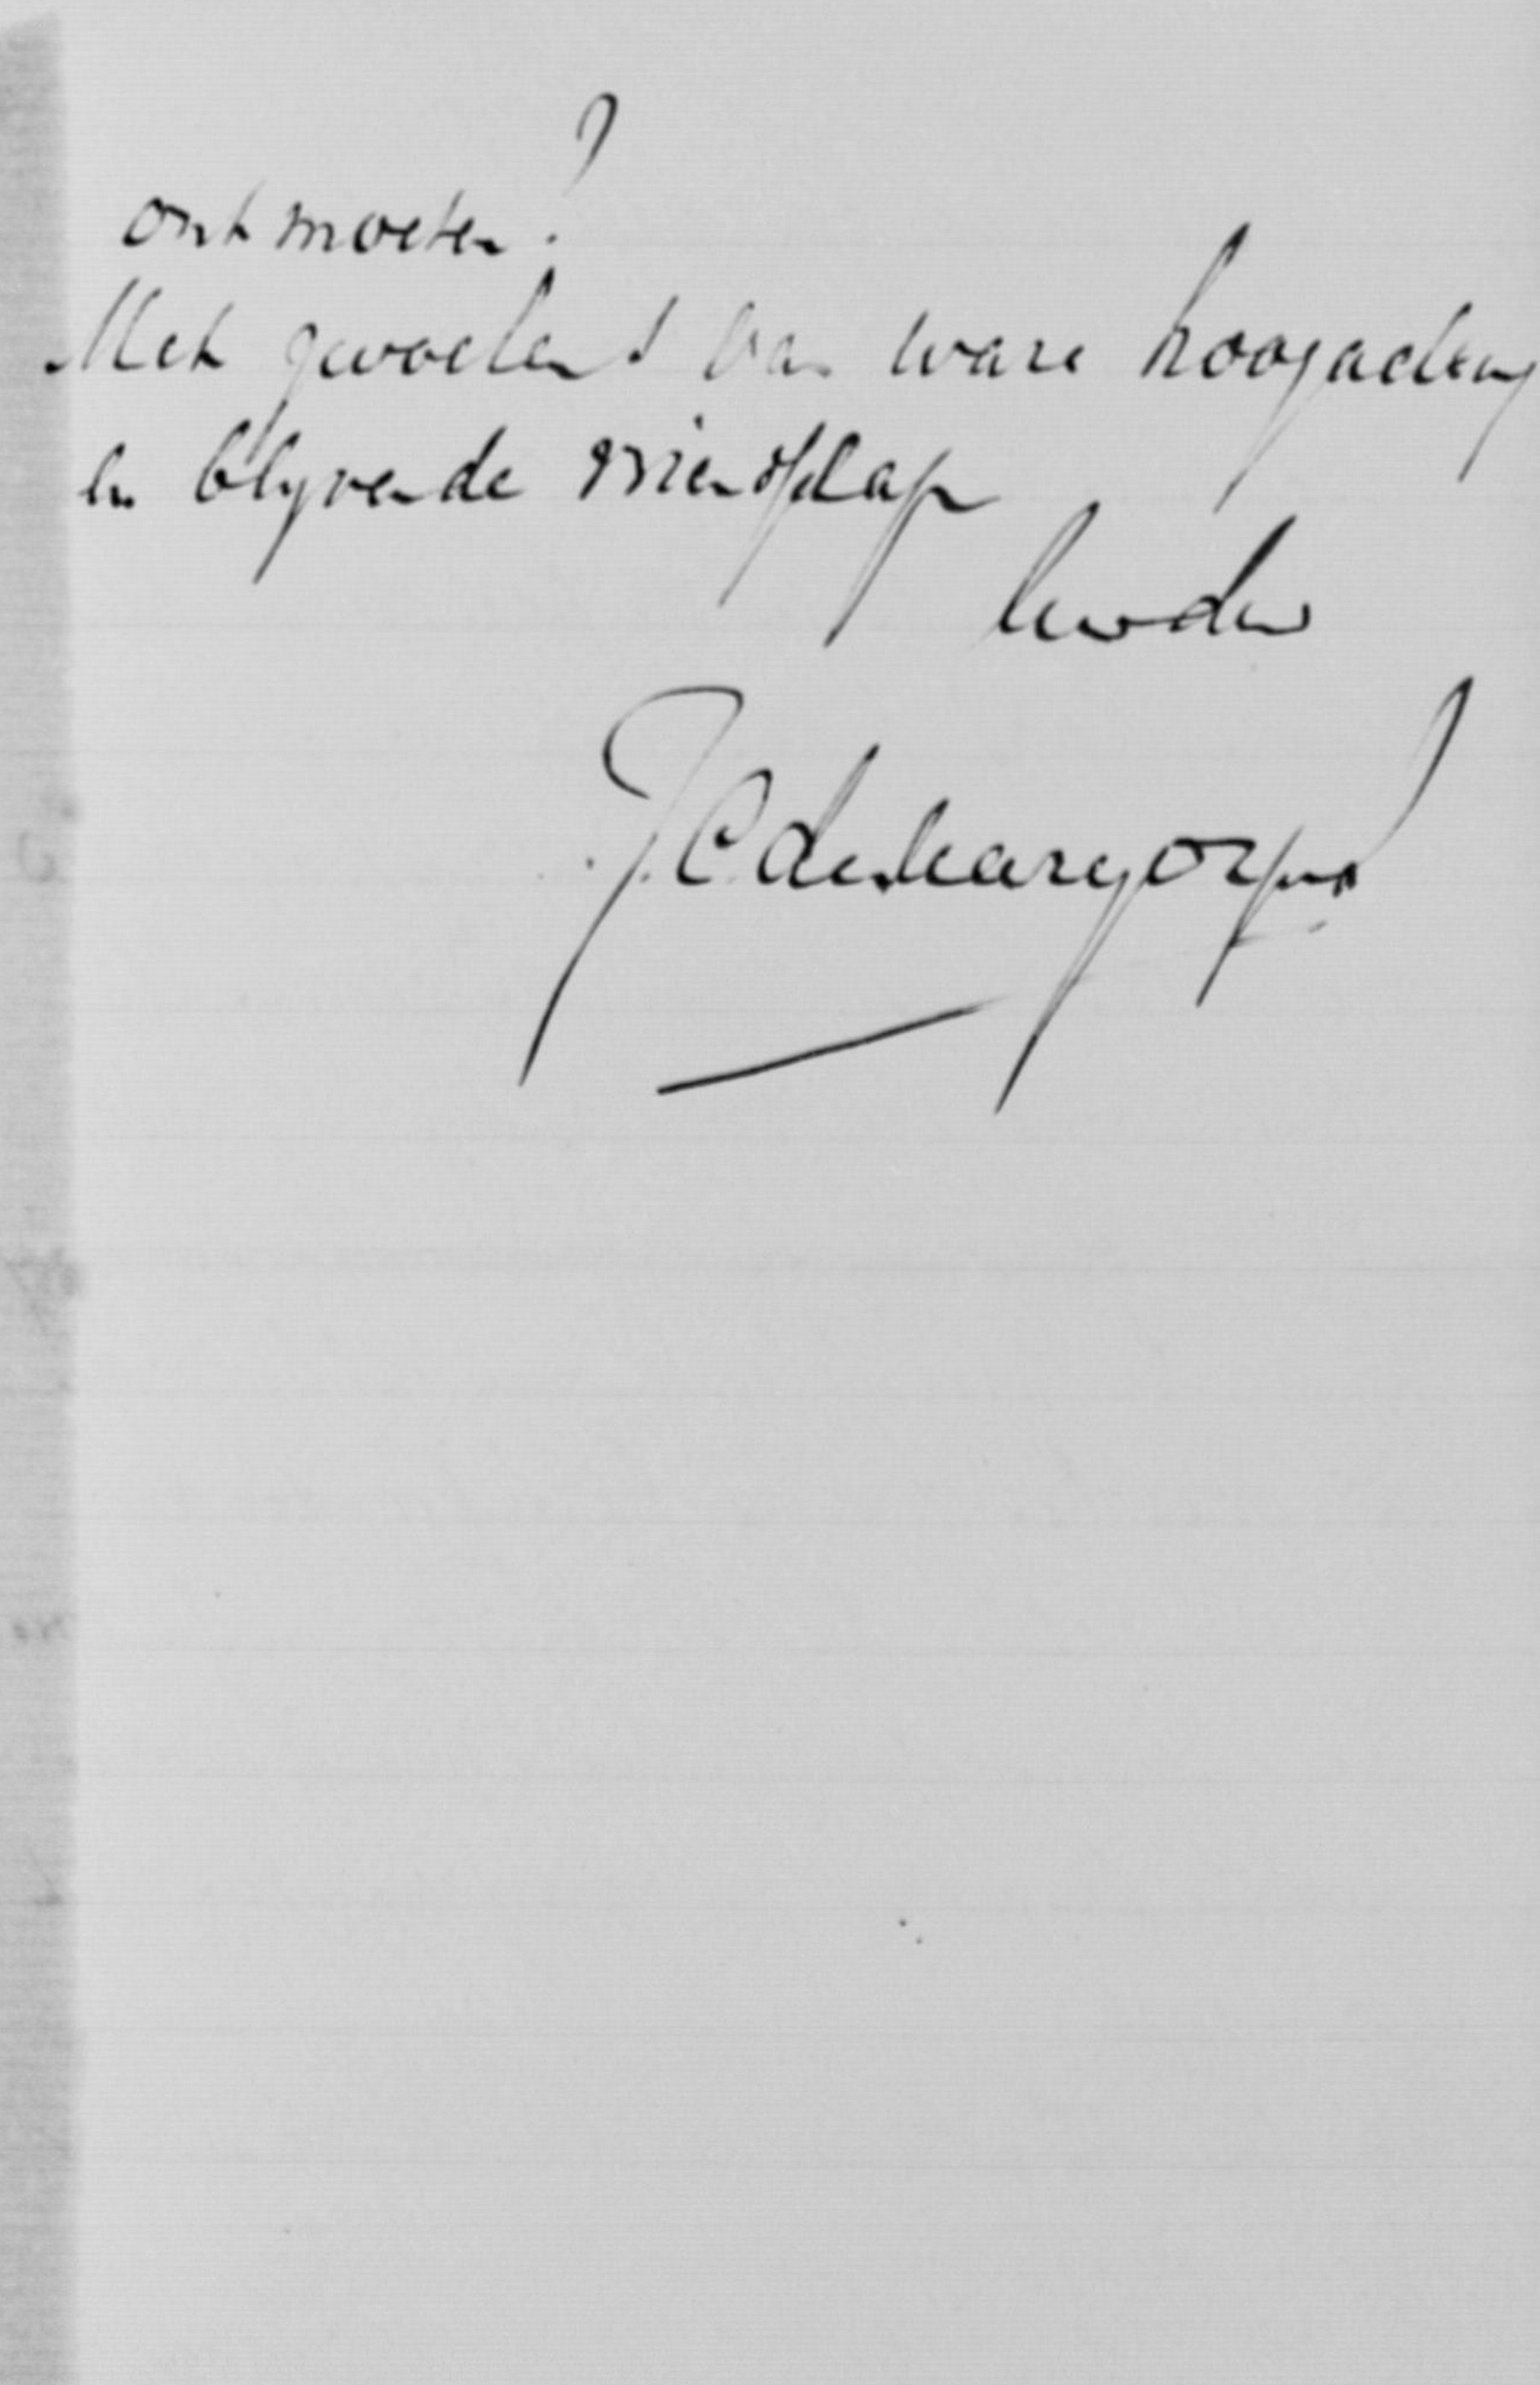 ontmoeten?
Met gevoelens van ware hoogachting
en blyvende vriendschap
J. C. de Marez Oyens